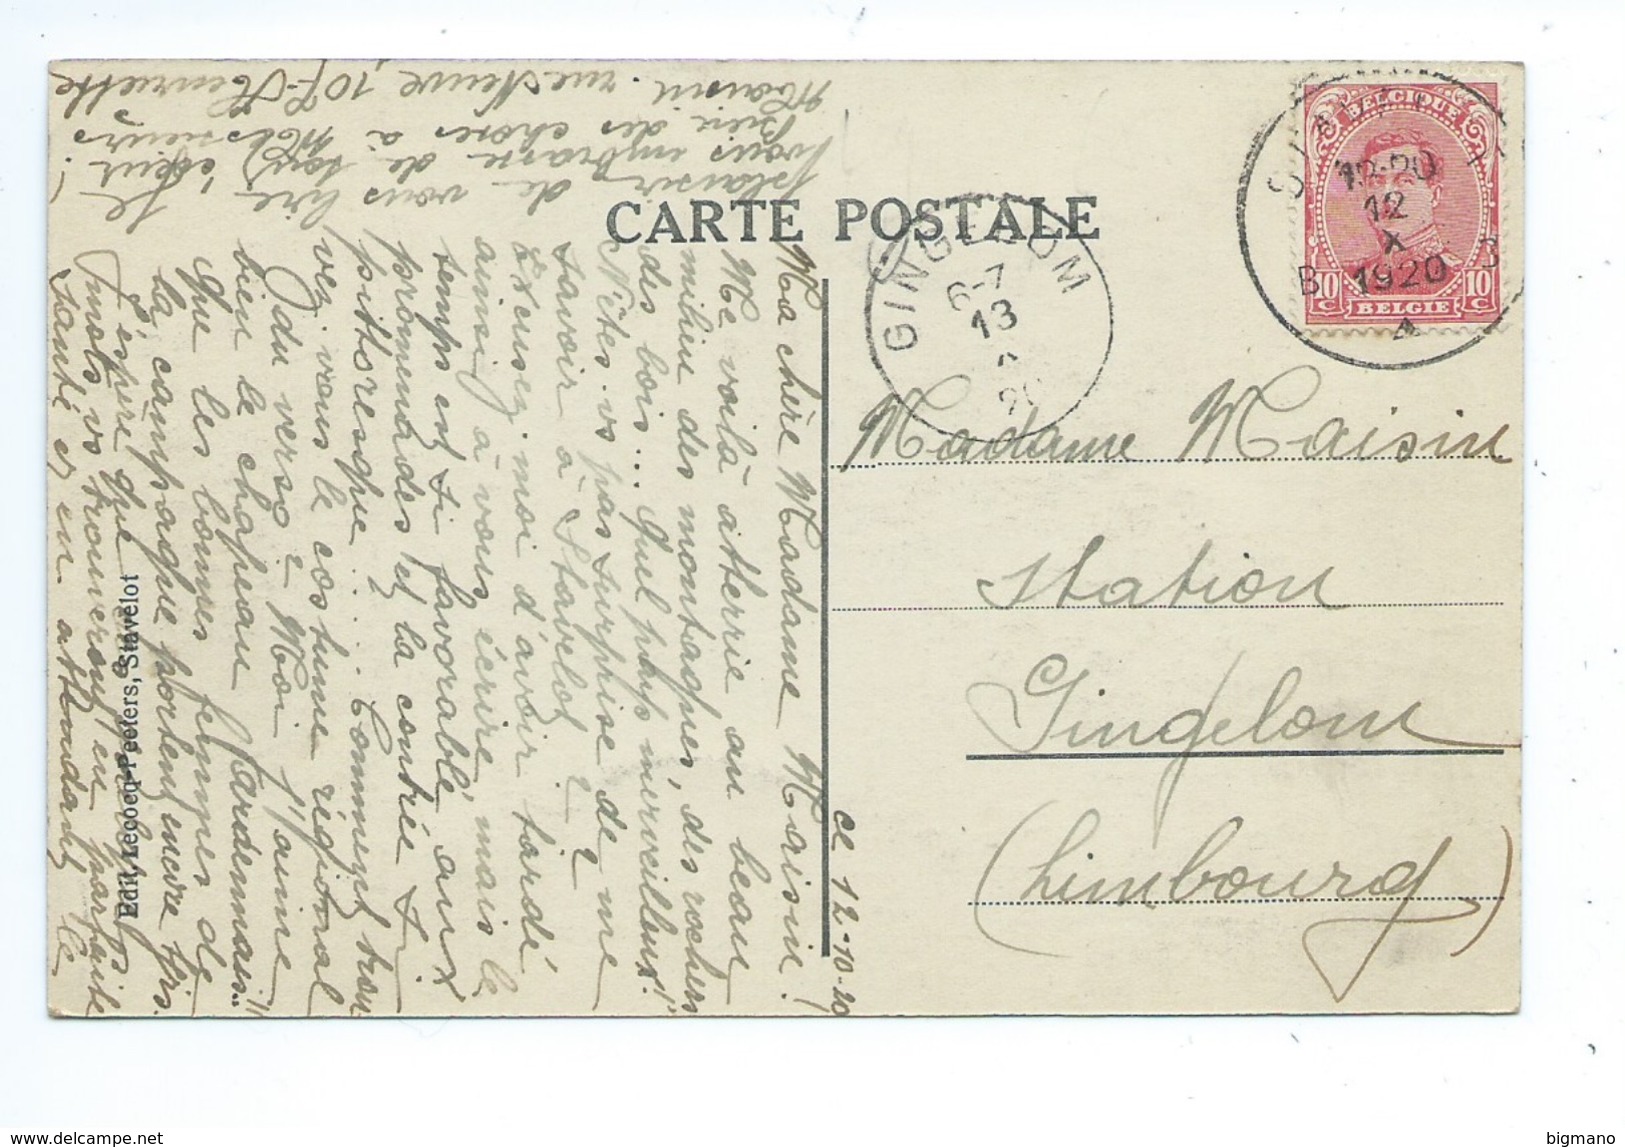 CARTE POSTALE
BELGIQUE
10 C 10 C
BELGIE
12-20
12
X
1920
B
GINGELOM
6-7
13
20
Madame Maisin
Station
Gingelom
(Limbourg)
ce 12-10-20
Ma chère Madame Maisin!
Me voilà atterrie au beau
milieu des montagnes, des rochers
des bois... Quel pays merveilleux!
N'êtes-vs pas surprise de me
savoir à Stavelot?
Excusez-moi d'avoir tardé
ainsi à vous écrire mais le
temps est si favorable aux
promenades et la contrée si
pittoresque..... Comment trou
vez vous le costume régional
du verso? Moi j'aime
bien le chapeau "Ardennais"
que les bonnes femmes de
la campagne portent encore
J'espère que
mots vs trouveront en parfaite
santé et en attendant le
plaisir de vous lire, je
vous embrasse de tout cœur
Bien des choses à Messieurs
Maisin. rue Neuve, 107- Henriette
Edit. Lecocq-Peeters, Stavelot
bigmano
www.delcampe.net